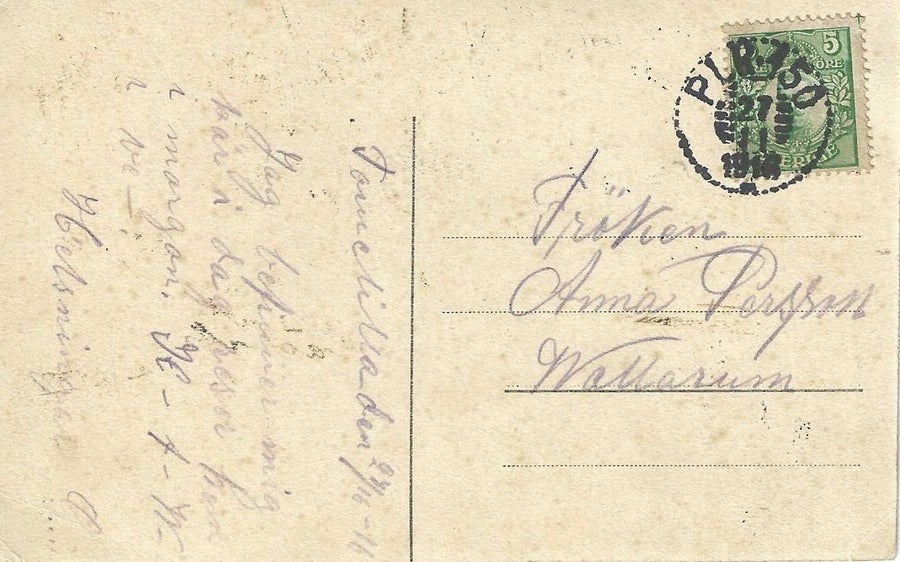 Tomelilla den 27/11-16
Jag befinner mig
här i dag reser hem
i morgon.
Hälsningar
5
ÖRE
SVERIGE
27
11
1916
Fröken
Anna Persson
Wallarum